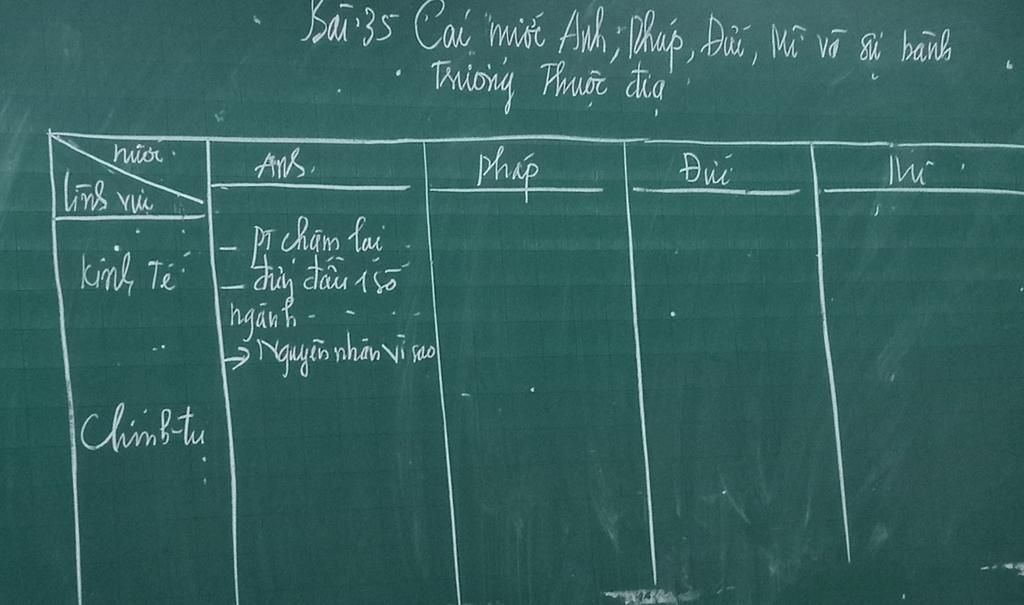 Bài 35 Các nước Anh, Pháp, Đức, Mĩ và sự bành
trướng thuộc địa
nước
lĩnh vực
Anh
Pháp
Đức
Mĩ
Kinh Tế
- PT chậm lại
- đứng đầu 1 số
ngành - - - -
→ Nguyên nhân vì sao
Chính-trị